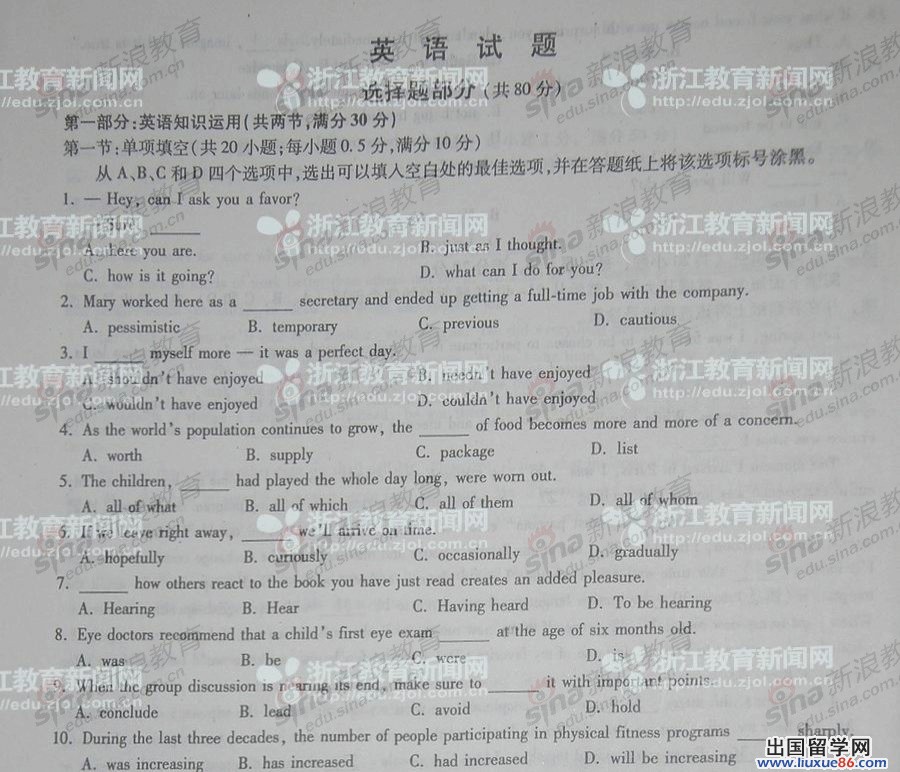 英语试题
选择题部分(共80分)
第一部分:英语知识运用(共两节,满分30分)
第一节:单项填空(共20小题;每小题0.5分,满分10分)
从A、B、C和D四个选项中,选出可以填入空白处的最佳选项,并在答题纸上将该选项标号涂黑。
1. — Hey, can I ask you a favor?
— Sure, ______
A. here you are. B. just as I thought.
C. how is it going? D. what can I do for you?
2. Mary worked here as a ______ secretary and ended up getting a full-time job with the company.
A. pessimistic B. temporary C. previous D. cautious
3. I ______ myself more — it was a perfect day.
A. shouldn't have enjoyed B. needn't have enjoyed
C. wouldn't have enjoyed D. couldn't have enjoyed
4. As the world's population continues to grow, the ______ of food becomes more and more of a concern.
A. worth B. supply C. package D. list
5. The children, ______ had played the whole day long, were worn out.
A. all of what B. all of which C. all of them D. all of whom
6. If we leave right away, ______ we'll arrive on time.
A. hopefully B. curiously C. occasionally D. gradually
7. ______ how others react to the book you have just read creates an added pleasure.
A. Hearing B. Hear C. Having heard D. To be hearing
8. Eye doctors recommend that a child's first eye exam ______ at the age of six months old.
A. was B. be C. were D. is
9. When the group discussion is nearing its end, make sure to ______ it with important points.
A. conclude B. lead C. avoid D. hold
10. During the last three decades, the number of people participating in physical fitness programs ______ sharply.
A. was increasing B. has increased C. had increased D. will be increasing
浙江教育新闻网
http://edu.zjol.com.cn
sina新浪教育
edu.sina.com.cn
出国留学网
www.liuxue86.com